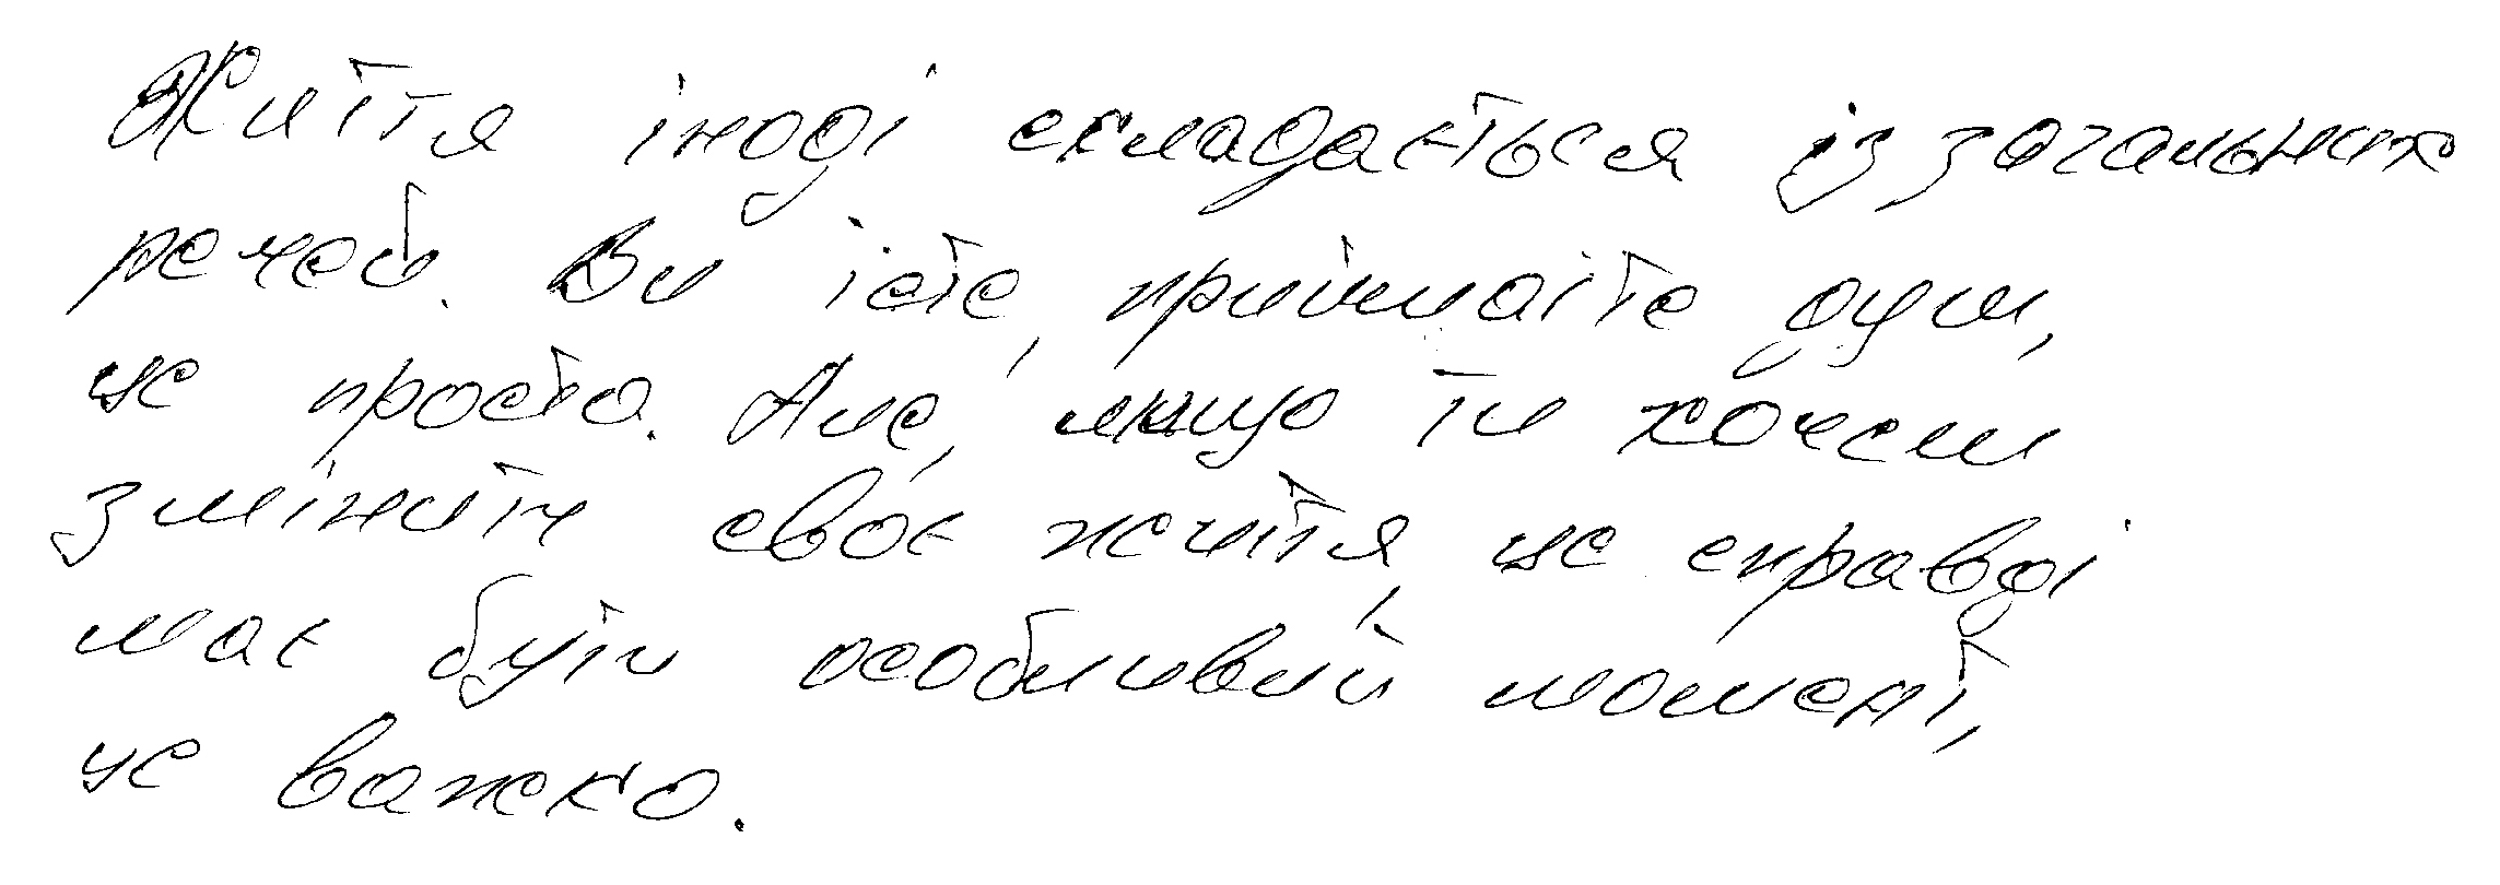 Життя іноді складається із загальних
речей. Ви їсте, приймаєте душ,
це просто. Але, якщо ти хочеш
змінити своє життя, це справді
має бути особливий момент,
це важко.